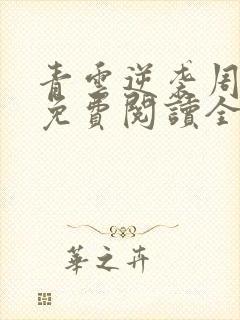 青雲逆袭周
免費閱讀全
華之卉